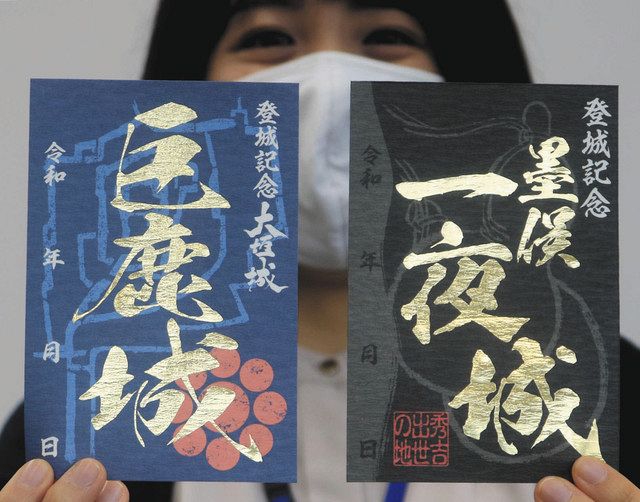 登城記念 大垣城
巨鹿城
令和 年 月 日
登城記念
墨俣
一夜城
令和 年 月 日
秀吉
出世
の地